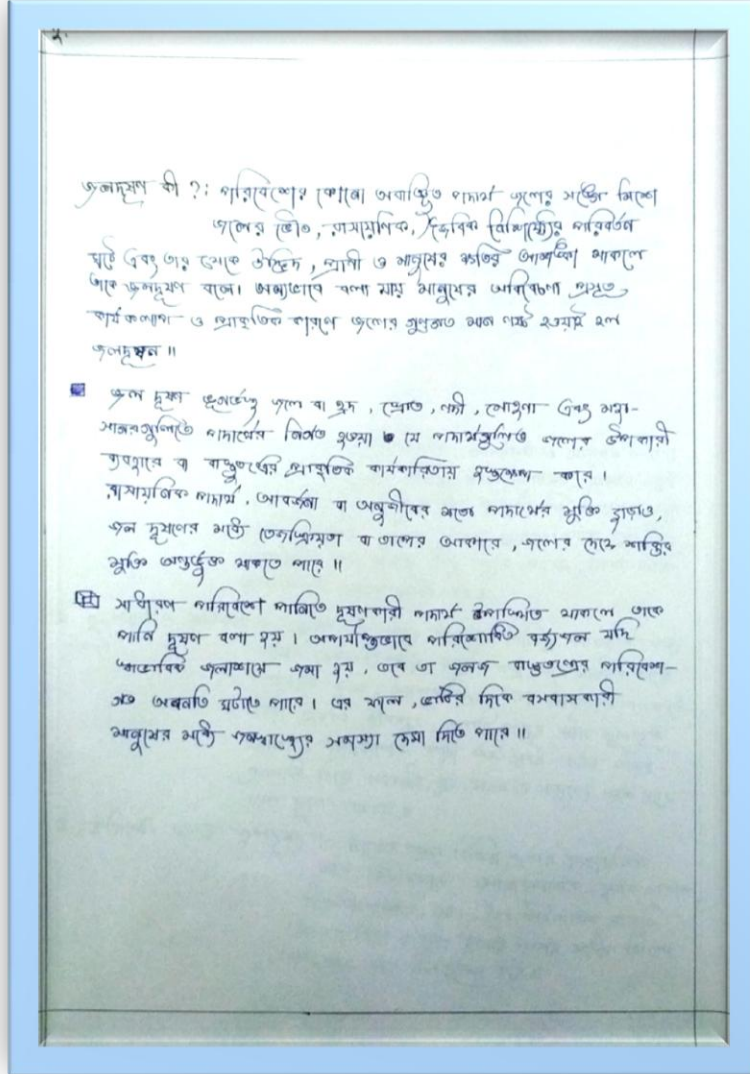 ২.
জলদূষণ কী ?: পরিবেশের কোনো অবাঞ্ছিত পদার্থ জলের সঙ্গে মিশে
জলের ভৌত, রাসায়নিক, জৈবিক বৈশিষ্ট্যের পরিবর্তন
ঘটে এবং তার থেকে উদ্ভিদ, প্রাণী ও মানুষের ক্ষতির আশঙ্কা থাকলে
তাকে জলদূষণ বলে। অন্যভাবে বলা যায় মানুষের অবিবেচনা প্রসূত
কার্যকলাপ ও প্রাকৃতিক কারণে জলের গুণগত মান নষ্ট হওয়াই হল
জলদূষন ॥
জল দূষণ ভূগর্ভস্থ জলে বা হ্রদ, স্রোত, নদী, মোহনা এবং মহা-
সাগরগুলিতে পদার্থের নির্গত হওয়া যে পদার্থগুলিত জলের উপকারী
ব্যবহারে বা বাস্তুতন্ত্রের প্রাকৃতিক কার্যকারিতায় হস্তক্ষেপ করে।
রাসায়নিক পদার্থ, আবর্জনা বা অনুজীবের মতো পদার্থের মুক্তি ছাড়াও,
জল দূষণের মধ্যে তেজস্ক্রিয়তা বা তাপের আকারে, জলের দেহে শক্তির
মুক্তি অন্তর্ভুক্ত থাকতে পারে ॥
সাধারণ পরিবেশে পানিতে দূষণকারী পদার্থ উপস্থিত থাকলে তাকে
পানি দূষণ বলা হয়। অপর্যাপ্তভাবে পরিশোধিত বর্জ্যজল যদি
স্বাভাবিক জলাশয়ে জমা হয়, তবে তা জলজ বাস্তুতন্ত্রের পরিবেশ-
গত অবনতি ঘটাতে পারে। এর ফলে, ভাটির দিকে বসবাসকারী
মানুষের মধ্যে জনস্বাস্থ্যের সমস্যা দেখা দিতে পারে ॥